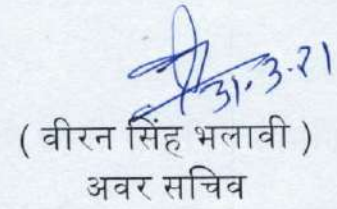 31.3.21
( वीरन सिंह भलावी )
अवर सचिव